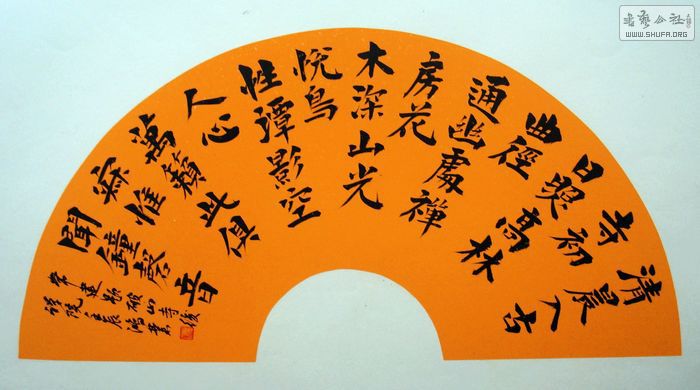 清晨入古
寺初
日照高林
曲徑
通幽處禪
房花
木深山光
悅鳥
性潭影空
人心
萬籟此俱
寂惟
聞鐘磬音
常建題破山寺後
禪院
書藝公社
WWW.SHUFA.ORG